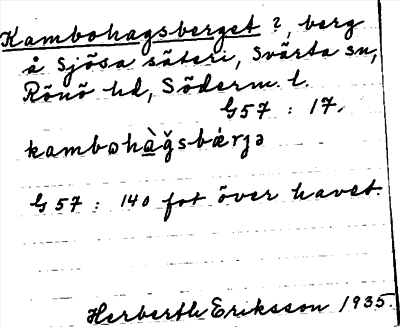 Kambohagsberget ?, berg
å Sjösa säteri, Svärta sn,
Rönö hd, Söderm. l.
G57 : 17.
kambωhà̲ğsbǽrjə
G57 : 140 fot över havet.
Herberth Eriksson 1935.